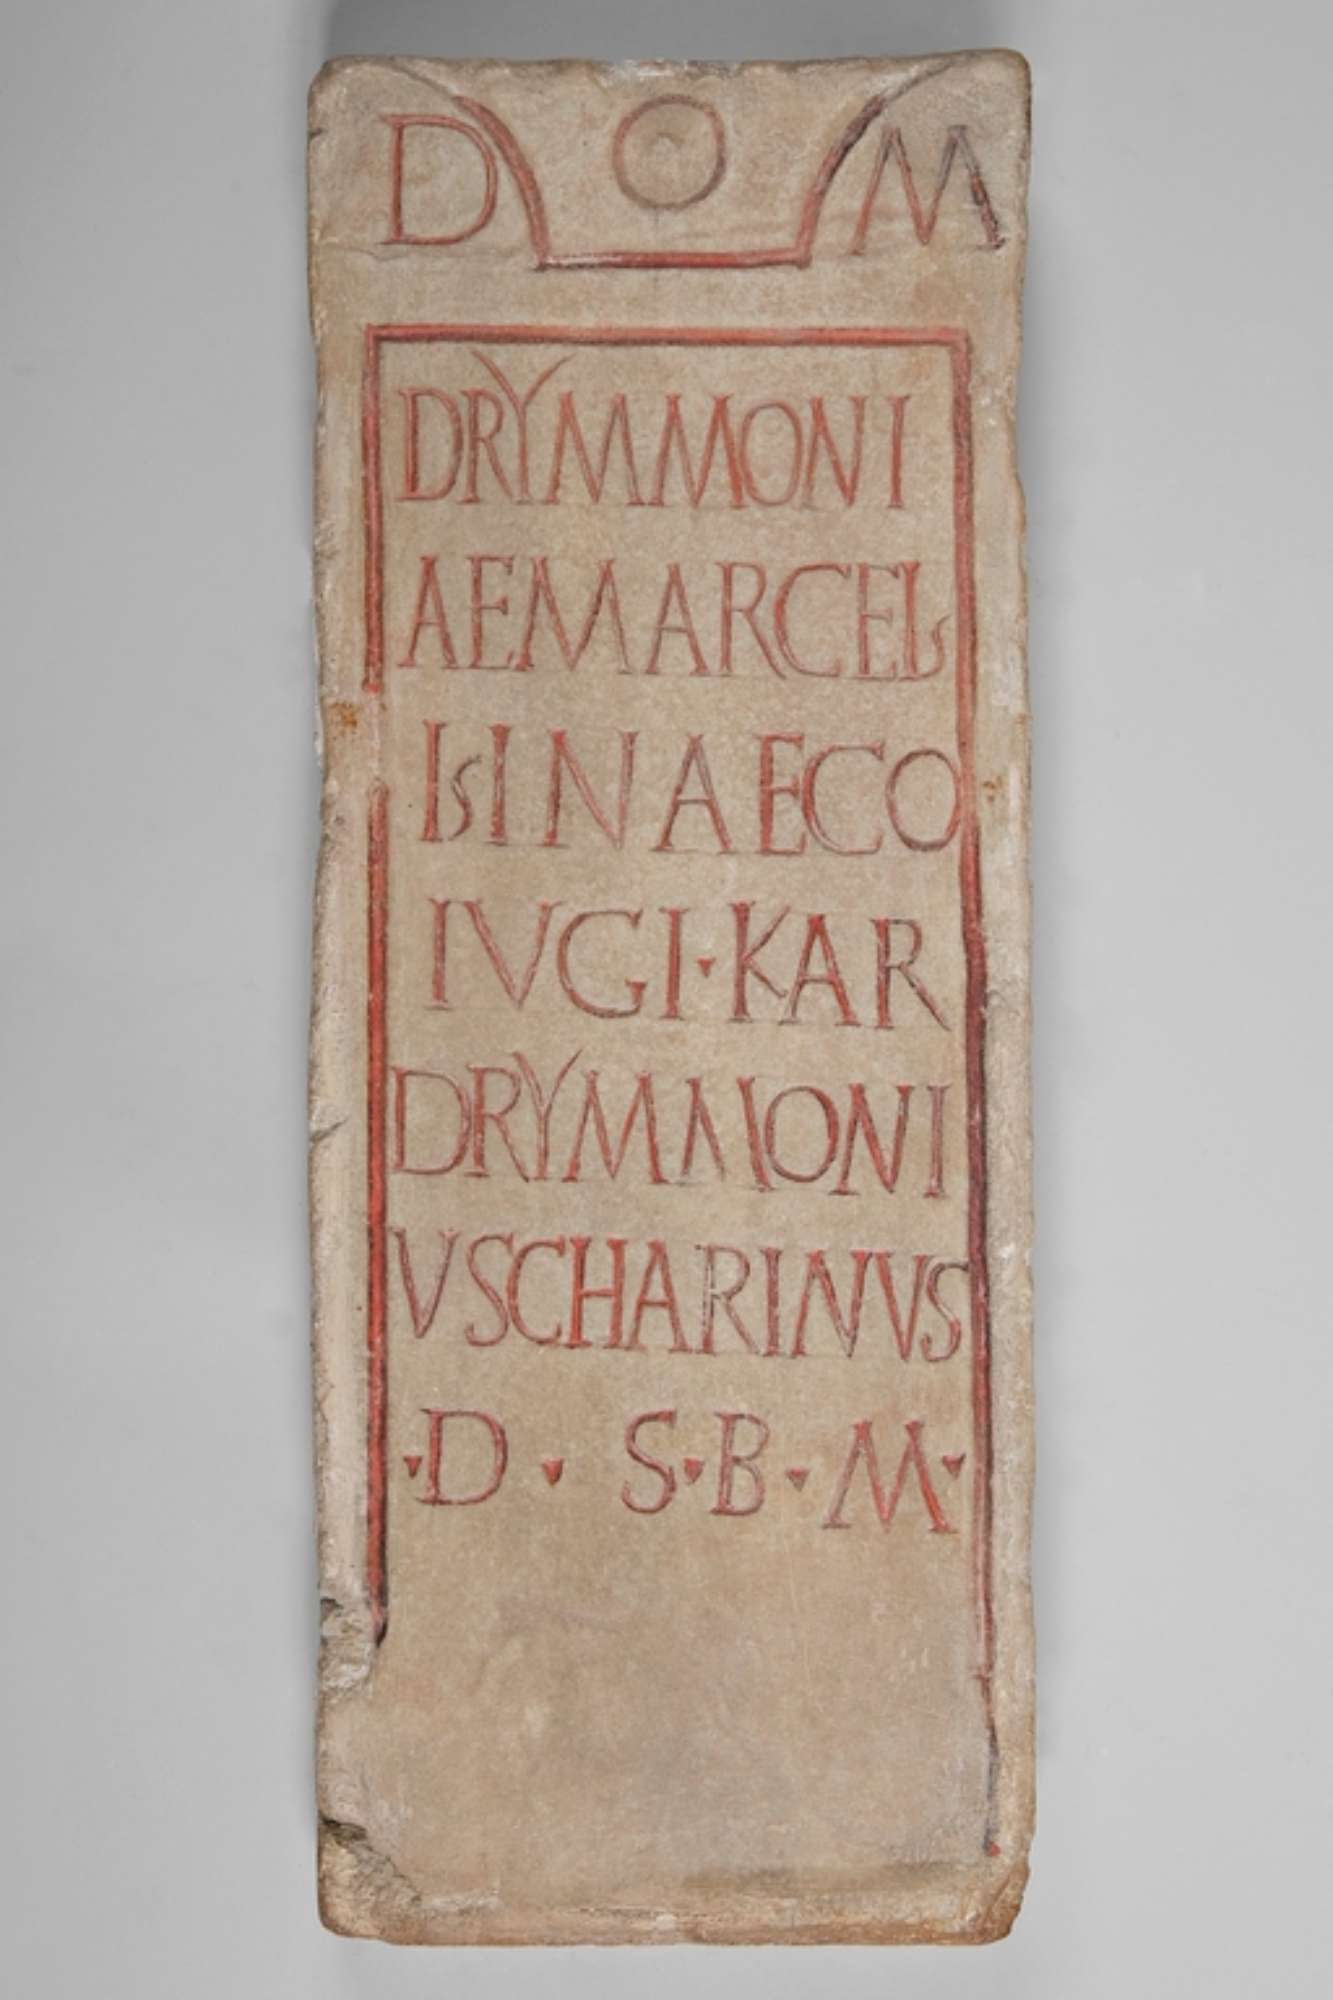 D M
DRYMMONI
AEMARCEL
LINAECO
IVGI·KAR
DRYMMONI
VSCHARINVS
·D· S·B·M·